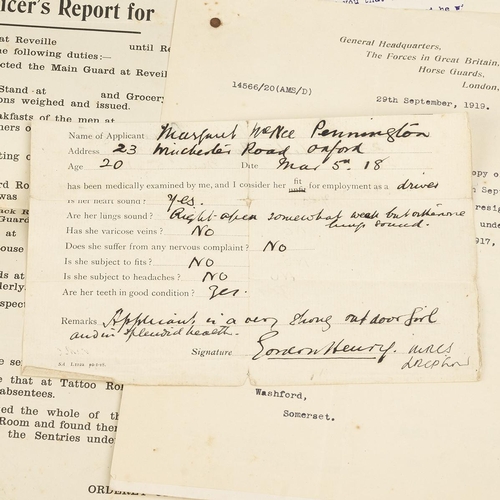 icer's Report for
at Reveille until Re
he following duties:—
cted the Main Guard at Reveil
Stand at and Grocery
ons weighed and issued.
akfasts of the men at
General Headquarters,
The Forces in Great Britain.
Horse Guards,
London.
14566/20(AMS/D)
29th September, 1919.
Name of Applicant Margaret McNee Pennington
Address 23 Winchester Road Oxford
Age 20 Date Mar 5th 18
has been medically examined by me, and I consider her fit unfit for employment as a driver
Is her heart sound? Yes.
Are her lungs sound? Right apex somewhat weak but otherwise lungs sound.
Has she varicose veins? No
Does she suffer from any nervous complaint? No
Is she subject to fits? No
Is she subject to headaches? No
Are her teeth in good condition? Yes.
Remarks Applicant is a very strong outdoor girl
and in splendid health.
Signature Gordon Henry. MRCS
LRCP Lon
opy o
Sept
resi
unde
917,
Washford,
Somerset.
e that at Tattoo Ro
absentees.
ed the whole of th
Room and found ther
the Sentries unde
ORDERLY